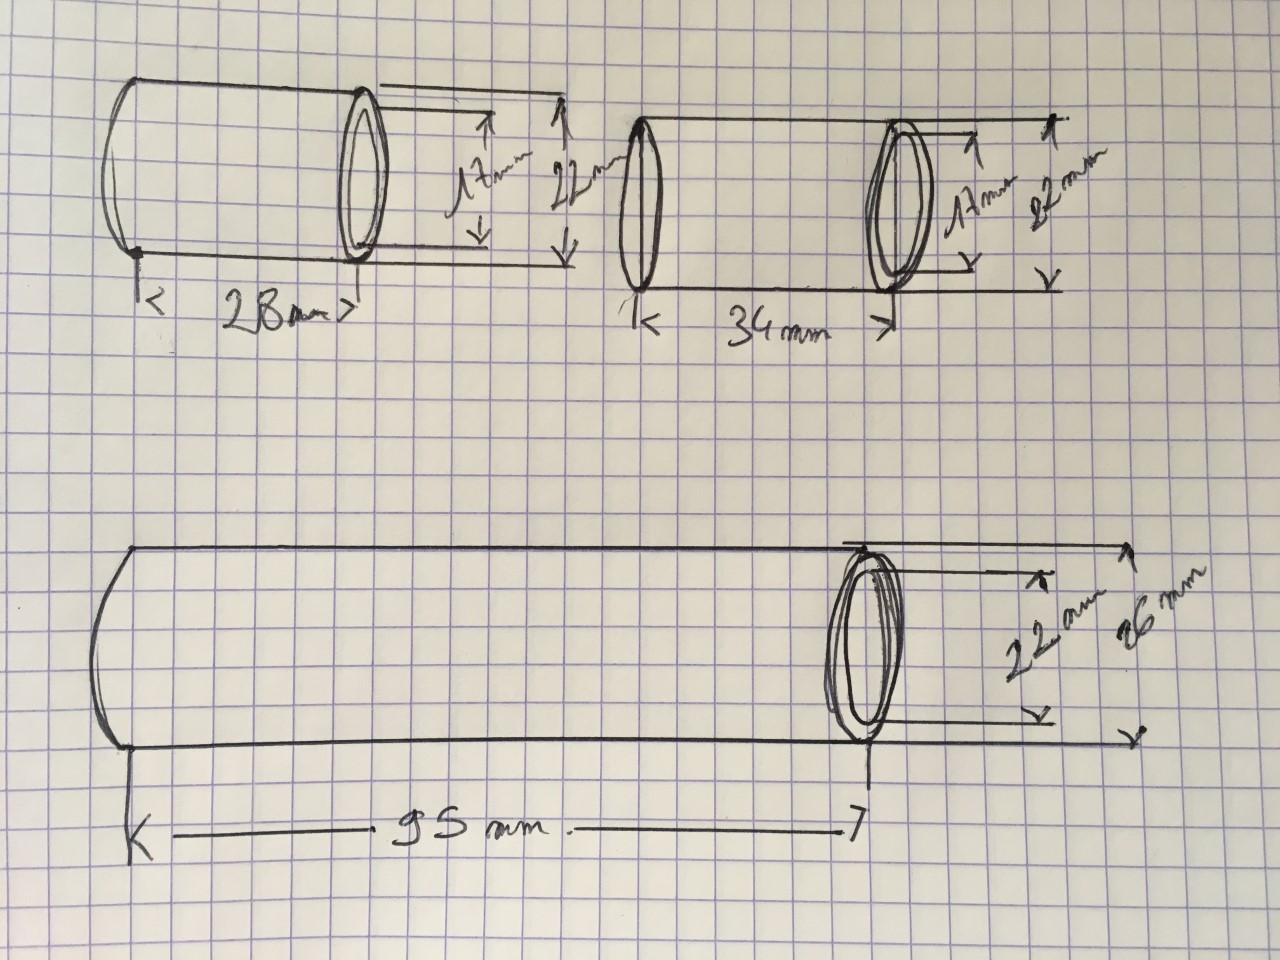 17mm
22mm
28mm
17mm
22mm
34mm
22mm
26mm
95mm